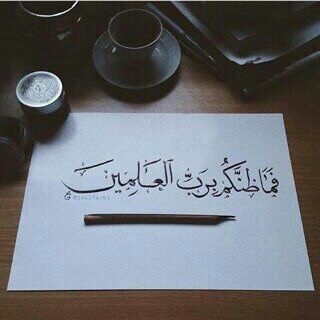 فَمَا ظَنُّكُم بِرَبِّ ٱلْعَـٰلَمِين